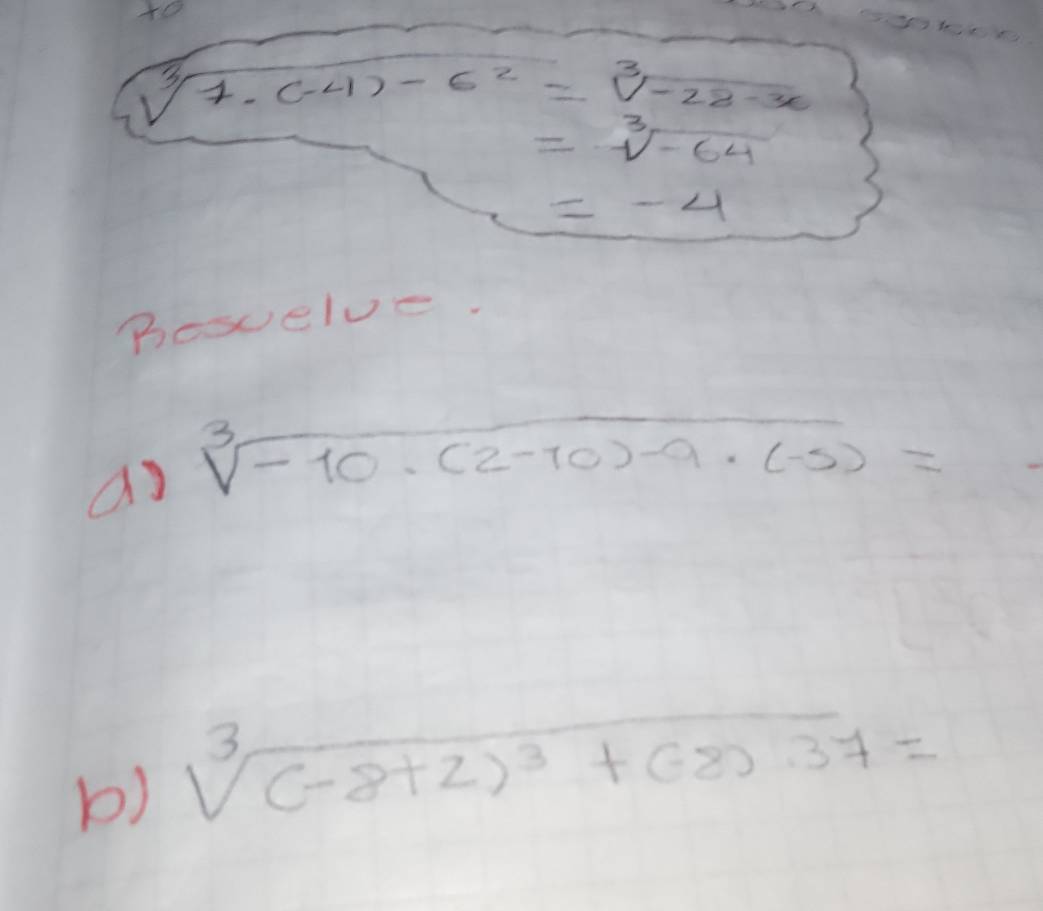 ∛7.(-4)-6² = ∛-28-36
= ∛-64
= -4
Resuelve.
a) ∛-10.(2-10)-9.(-5) =
b) ∛(-8+2)³+(-8).37 =